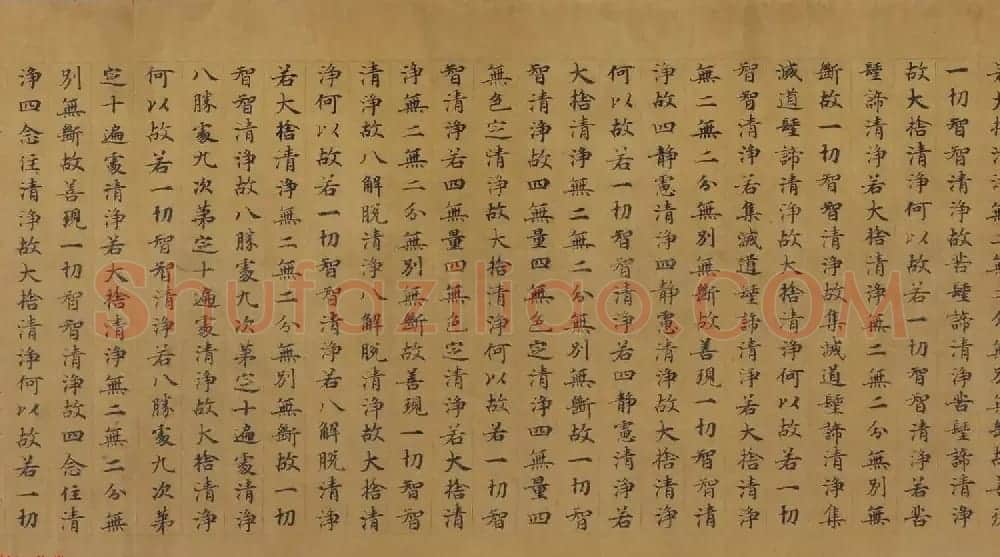 一切智智清淨故苦聖諦清淨苦聖諦清淨
故大捨清淨何以故若一切智智清淨若苦
聖諦清淨若大捨清淨無二無二分無別無
斷故一切智智清淨故集滅道聖諦清淨集
滅道聖諦清淨故大捨清淨何以故若一切
智智清淨若集滅道聖諦清淨若大捨清淨
無二無二分無別無斷故善現一切智智清
淨故四靜慮清淨四靜慮清淨故大捨清淨
何以故若一切智智清淨若四靜慮清淨若
大捨清淨無二無二分無別無斷故一切智
智清淨故四無量四無色定清淨四無量四
無色定清淨故大捨清淨何以故若一切智
智清淨若四無量四無色定清淨若大捨清
淨無二無二分無別無斷故善現一切智智
清淨故八解脫清淨八解脫清淨故大捨清
淨何以故若一切智智清淨若八解脫清淨
若大捨清淨無二無二分無別無斷故一切
智智清淨故八勝處九次第定十遍處清淨
八勝處九次第定十遍處清淨故大捨清淨
何以故若一切智智清淨若八勝處九次第
定十遍處清淨若大捨清淨無二無二分無
別無斷故善現一切智智清淨故四念住清
淨四念住清淨故大捨清淨何以故若一切
Shufaziliao.COM